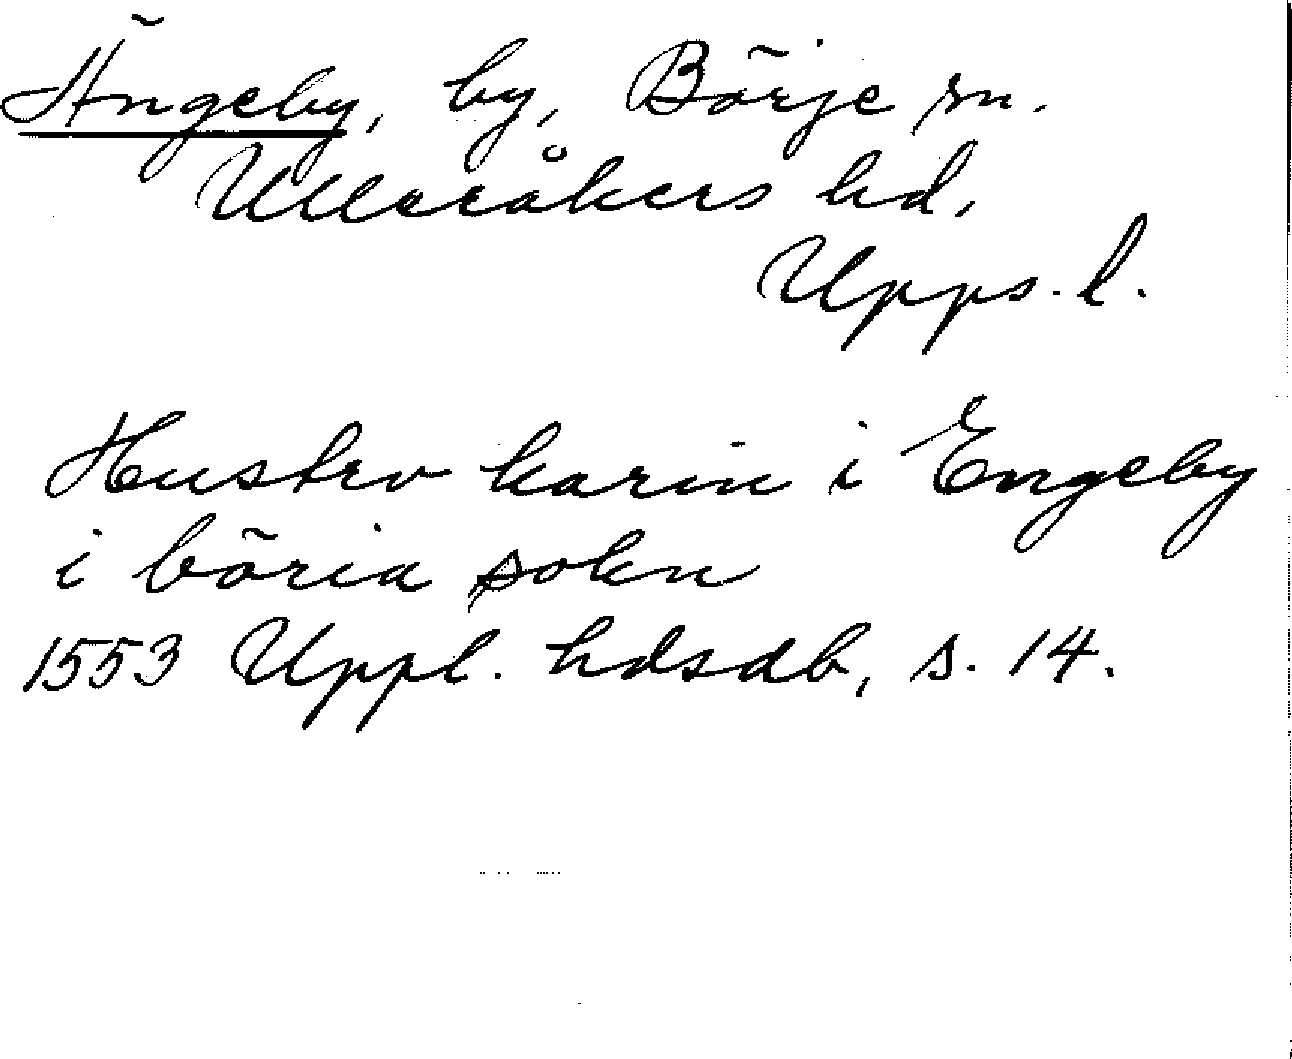 Ängeby, by, Börje sn.
Ulleråkers hd,
Upps. l.
Hustrv karin i Engeby
i böria sokn
1553 Uppl. hdsdb, s. 14.